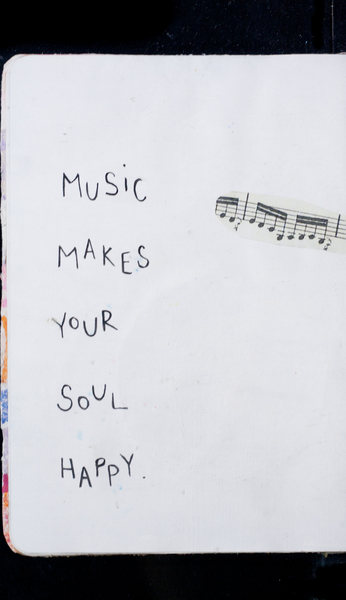 MUSiC
MAKES
YOUR
SOUL
HAPPY.